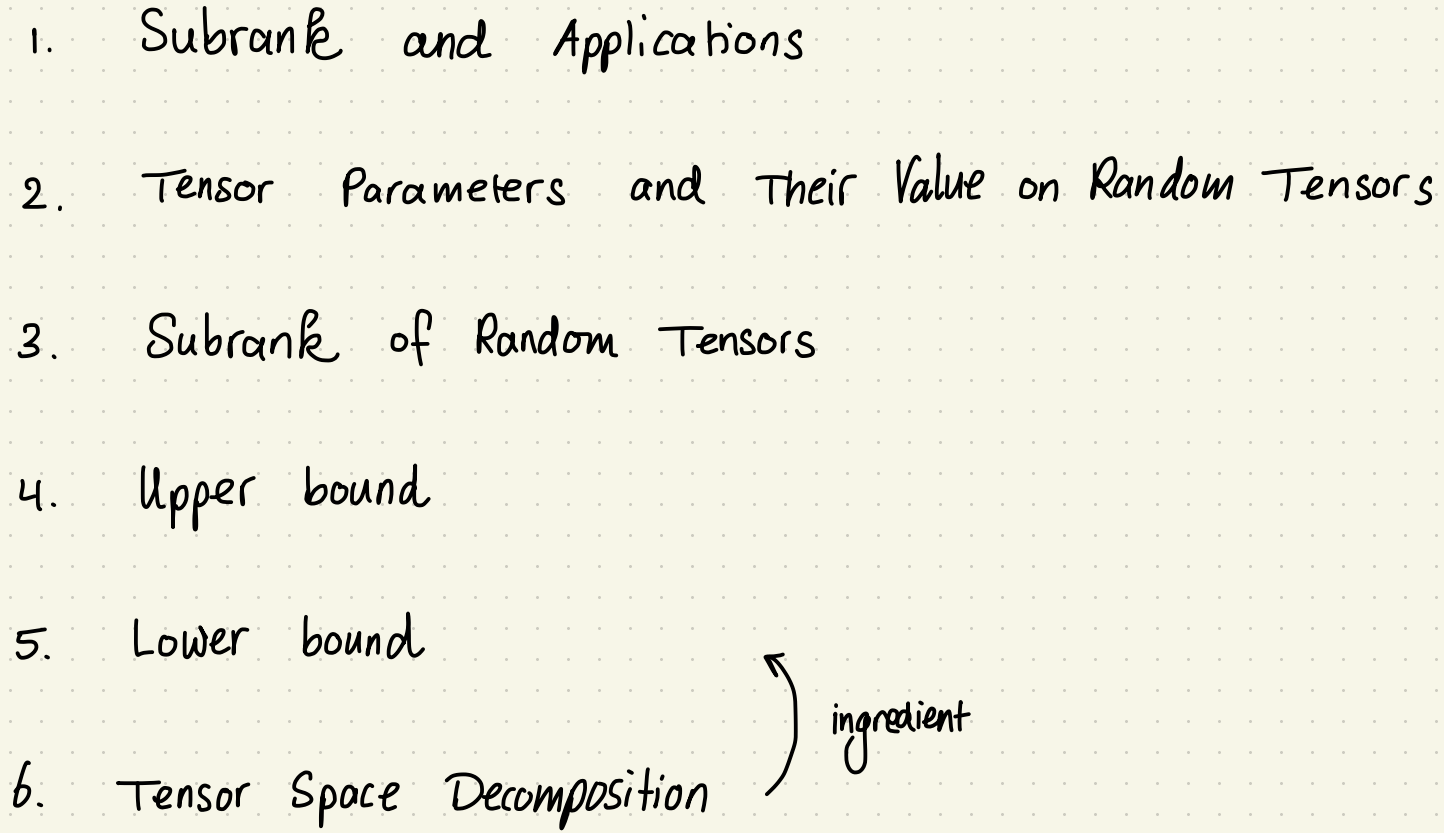 1. Subrank and Applications
2. Tensor Parameters and Their Value on Random Tensors
3. Subrank of Random Tensors
4. Upper bound
5. Lower bound
ingredient
6. Tensor Space Decomposition